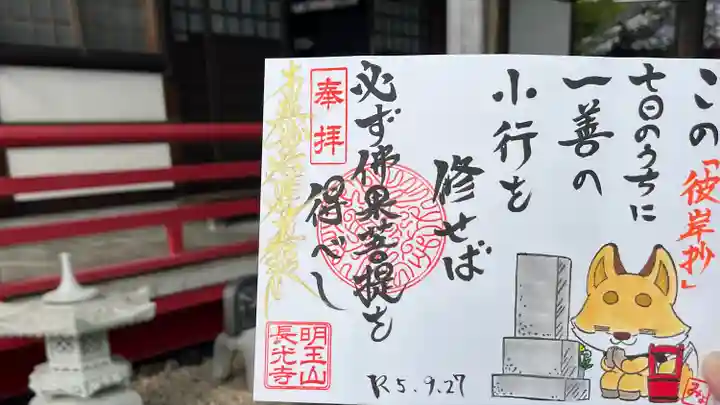 この
「彼岸抄」
七日のうちに
一善の
小行を
修せば
必ず佛果菩提を
得べし
奉拝
明王山
長光寺
R5.9.27